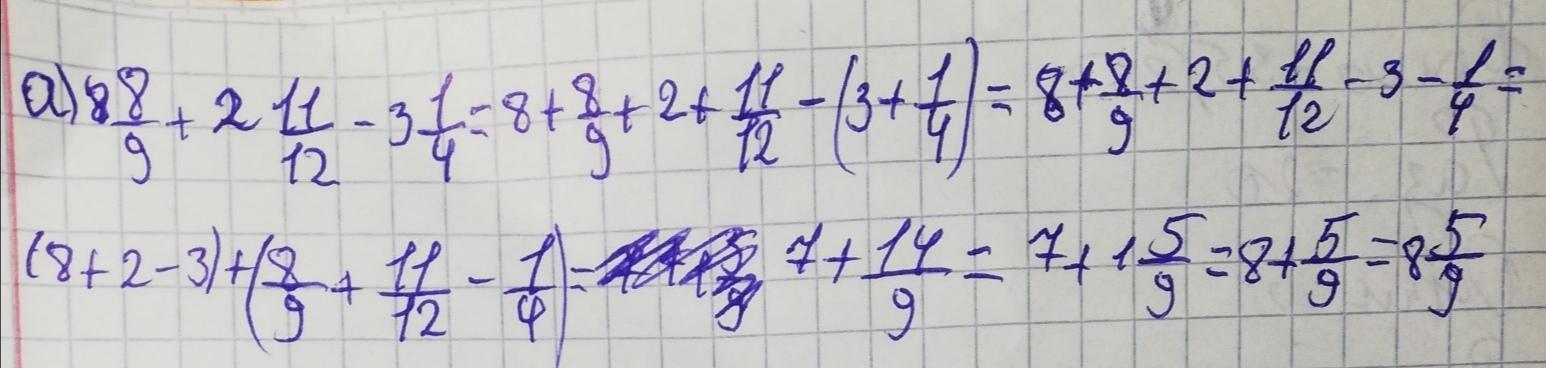 а) 8 8/9 + 2 11/12 - 3 1/4 = 8 + 8/9 + 2 + 11/12 - (3 + 1/4) = 8 + 8/9 + 2 + 11/12 - 3 - 1/4 =
(8 + 2 - 3) + (8/9 + 11/12 - 1/4) = 7 + 14/9 = 7 + 1 5/9 = 8 + 5/9 = 8 5/9